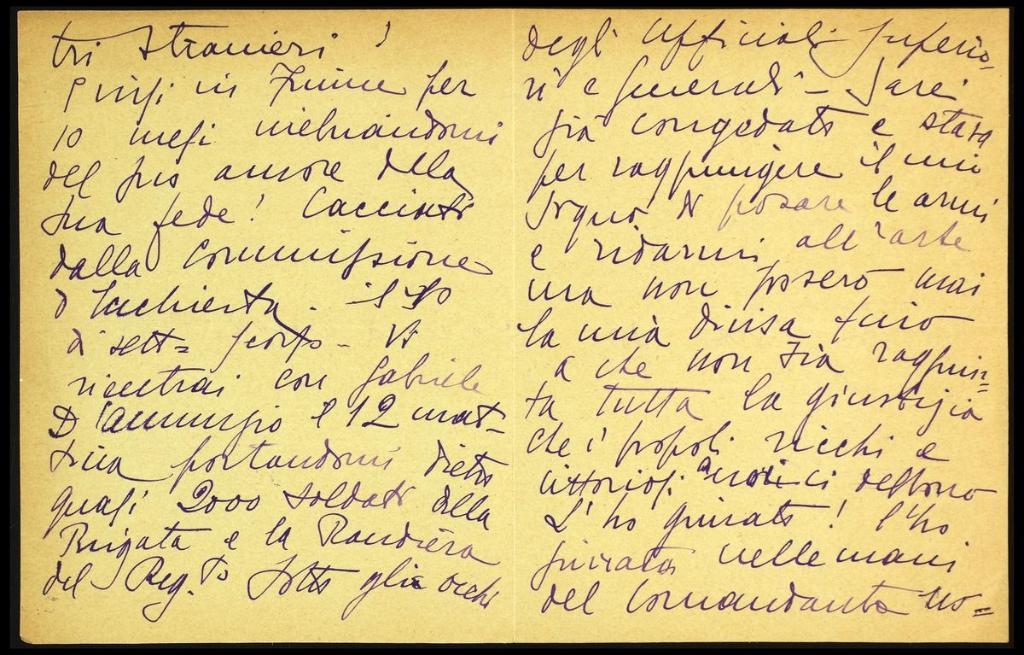 tri stranieri!
Vissi in Fiume per
10 mesi inebriandomi
del suo amore della
sua fede! Cacciato
dalla Commissione
d'Inchiesta. il 30
di sett= scorso - Vi
rientrai con Gabriele
D'Annunzio il 12 mat-
tina portandomi dietro
quasi 2000 soldati della
Brigata e la Bandiera
del Reg.to sotto gli occhi
degli Ufficiali Superio-
ri e Generali - Sarei
già congedato e stava
per raggiungere il mio
sogno di posare le armi
e ridarmi all'arte
ma non poserò mai
la mia divisa fino
a che non sia raggiun=
ta tutta la giustizia
che i popoli ricchi e
vittoriosi a noi ci debbono
L'ho giurato! l'ho
giurato nelle mani
del Comandante no=